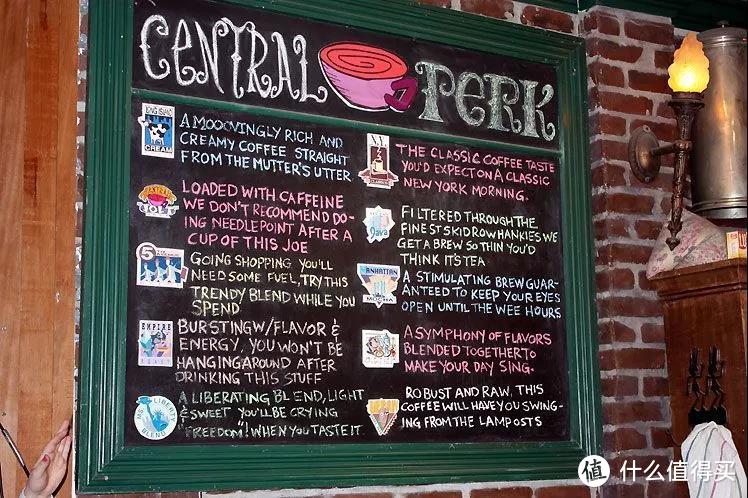 CENTRAL PERK
CREAM
A MOOOVINGLY RICH AND
CREAMY COFFEE STRAIGHT
FROM THE MUTTER'S UTTER.
CENTRAL
JOLT
LOADED WITH CAFFEINE
WE DON'T RECOMMEND DO-
ING NEEDLEPOINT AFTER A
CUP OF THIS JOE
5
GOING SHOPPING YOU'LL
NEED SOME FUEL, TRY THIS
TRENDY BLEND WHILE YOU
SPEND
EMPIRE
ROAST
BURSTING W/ FLAVOR &
ENERGY, YOU WON'T BE
HANGING AROUND AFTER
DRINKING THIS STUFF
LIBERTY
BLEND
A LIBERATING BLEND, LIGHT
& SWEET YOU'LL BE CRYING
"FREEDOM"! WHEN YOU TASTE IT.
N.Y.
THE CLASSIC COFFEE TASTE
YOU'D EXPECT ON A CLASSIC
NEW YORK MORNING.
Java
FILTERED THROUGH THE
FINEST SKIDROW HANKIES WE
GET A BREW SO THIN YOU'D
THINK IT'S TEA
MANHATTAN
MOCHA
A STIMULATING BREW GUAR-
ANTEED TO KEEP YOUR EYES
OPEN UNTIL THE WEE HOURS
A SYMPHONY OF FLAVORS
BLENDED TOGETHER TO
MAKE YOUR DAY SING.
ROBUST AND RAW, THIS
COFFEE WILL HAVE YOU SWING-
ING FROM THE LAMP OSTS
值 什么值得买